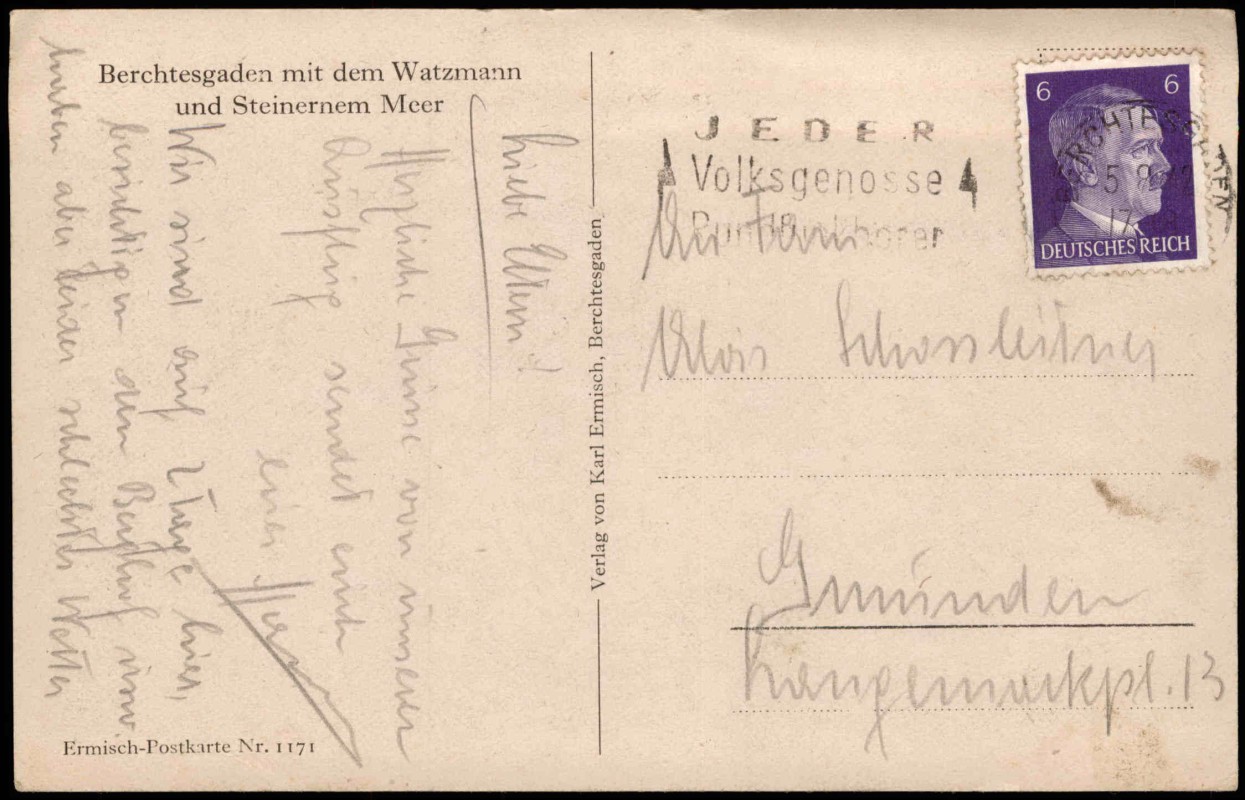 Berchtesgaden mit dem Watzmann
und Steinernem Meer
Liebe Eltern!
Herzliche Grüsse von unserer
Ausflug sendet euch
euer
Wir sind auf 2 Tage hier,
besichtigen den Berghof usw.
haben aber leider schlechtes Wetter
Ermisch-Postkarte Nr. 1171
Verlag von Karl Ermisch, Berchtesgaden
JEDER
Volksgenosse
Rundfunkhörer
6 6
DEUTSCHES REICH
BERCHTESGADEN
An Fam
Alois Schossleitner
Gmünden
Langemarckpl. 13